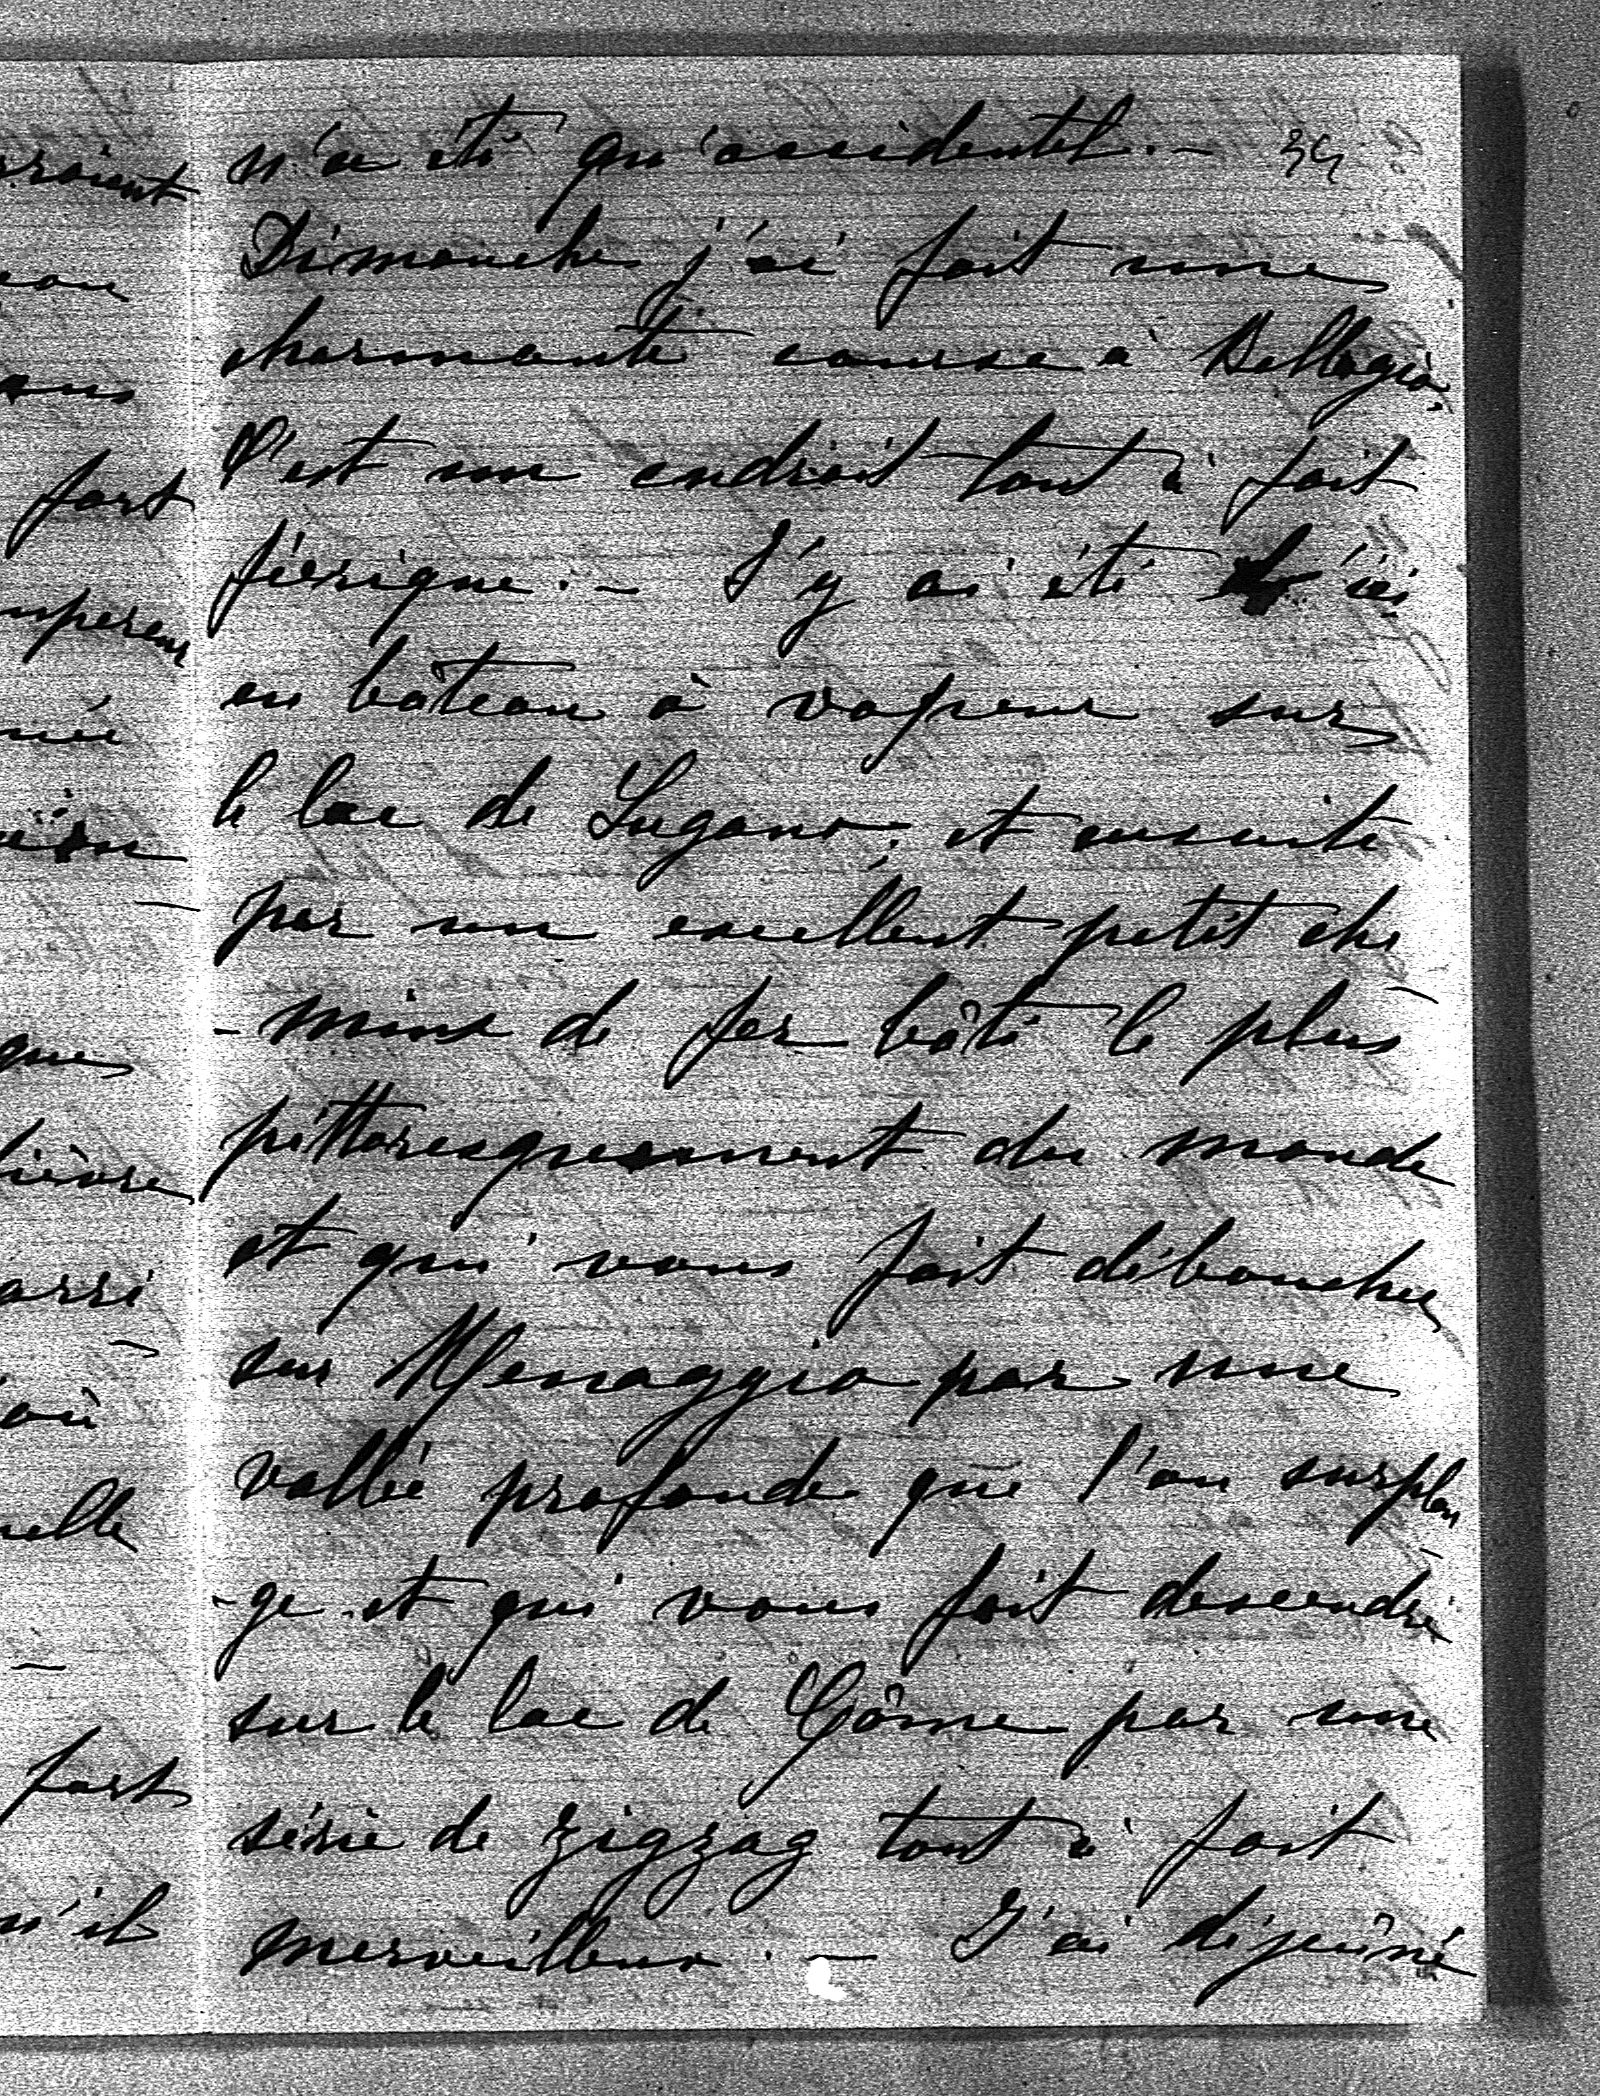 n'a été qu'accidentel. — 39
Dimanche j'ai fait une
charmante course à Bellagio.
C'est un endroit tout à fait
féerique. — J'y ai été d'ici
en bâteau à vapeur sur
le lac de Lugano; et ensuite
par un excellent petit che
-mins de fer bâti le plus
pittoresquement du monde
et qui vous fait déboucher
sur Menaggio par une
vallée profonde que l'on surplom
-ge et qui vous fait descendre
sur le lac de Côme par une
série de zigzag tout à fait
merveilleux. — J'ai déjeûné
fort
mpereur
que
lièvre
arri
elle
fort
n'il